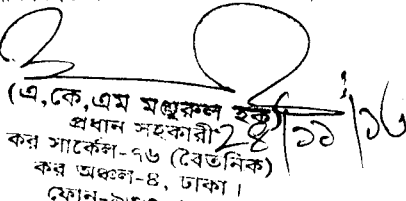 (এ,কে,এম মঞ্জুরুল হক)
প্রধান সহকারী
কর সার্কেল-৭৬ (বৈতনিক)
কর অঞ্চল-৪, ঢাকা।
ফোন-